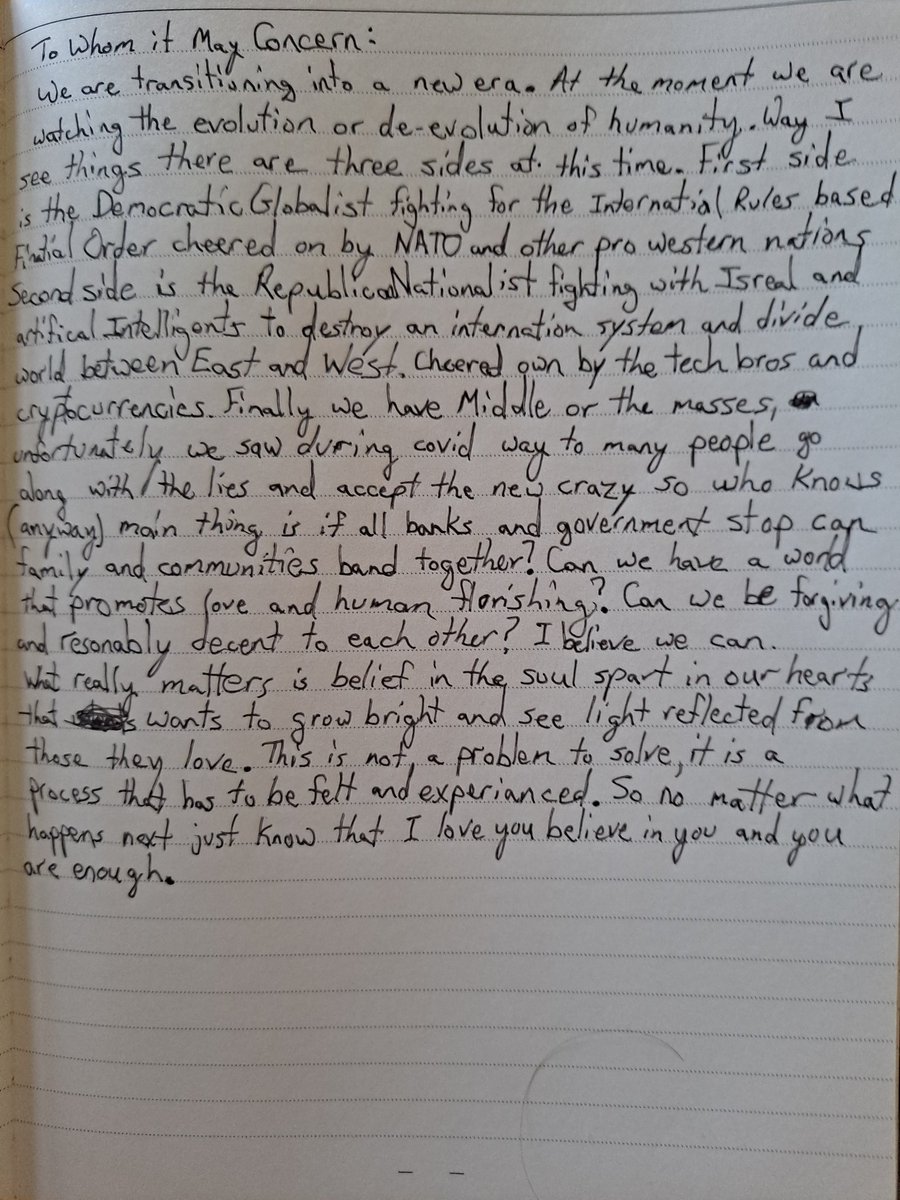 To Whom it May Concern:
We are transitioning into a new era. At the moment we are
watching the evolution or de-evolution of humanity. Way I
see things there are three sides at this time. First side
is the Democratic Globalist fighting for the Internatial Rules based
Finatial Order cheered on by NATO and other pro western nations
Second side is the Republican Nationalist fighting with Isreal and
artifical Intelligents to destroy an internation system and divide
world between East and West. Cheered own by the tech bros and
cryptocurrencies. Finally we have Middle or the masses,
unfortunately we saw during covid way to many people go
along with the lies and accept the new crazy so who knows
(anyway) main thing is if all banks and government stop can
family and communities band together? Can we have a world
that promotes love and human florishing? Can we be forgiving
and resonably decent to each other? I believe we can.
What really matters is belief in the suul spart in our hearts
that wants to grow bright and see light reflected from
those they love. This is not a problem to solve, it is a
process that has to be felt and experianced. So no matter what
happens next just know that I love you believe in you and you
are enough.